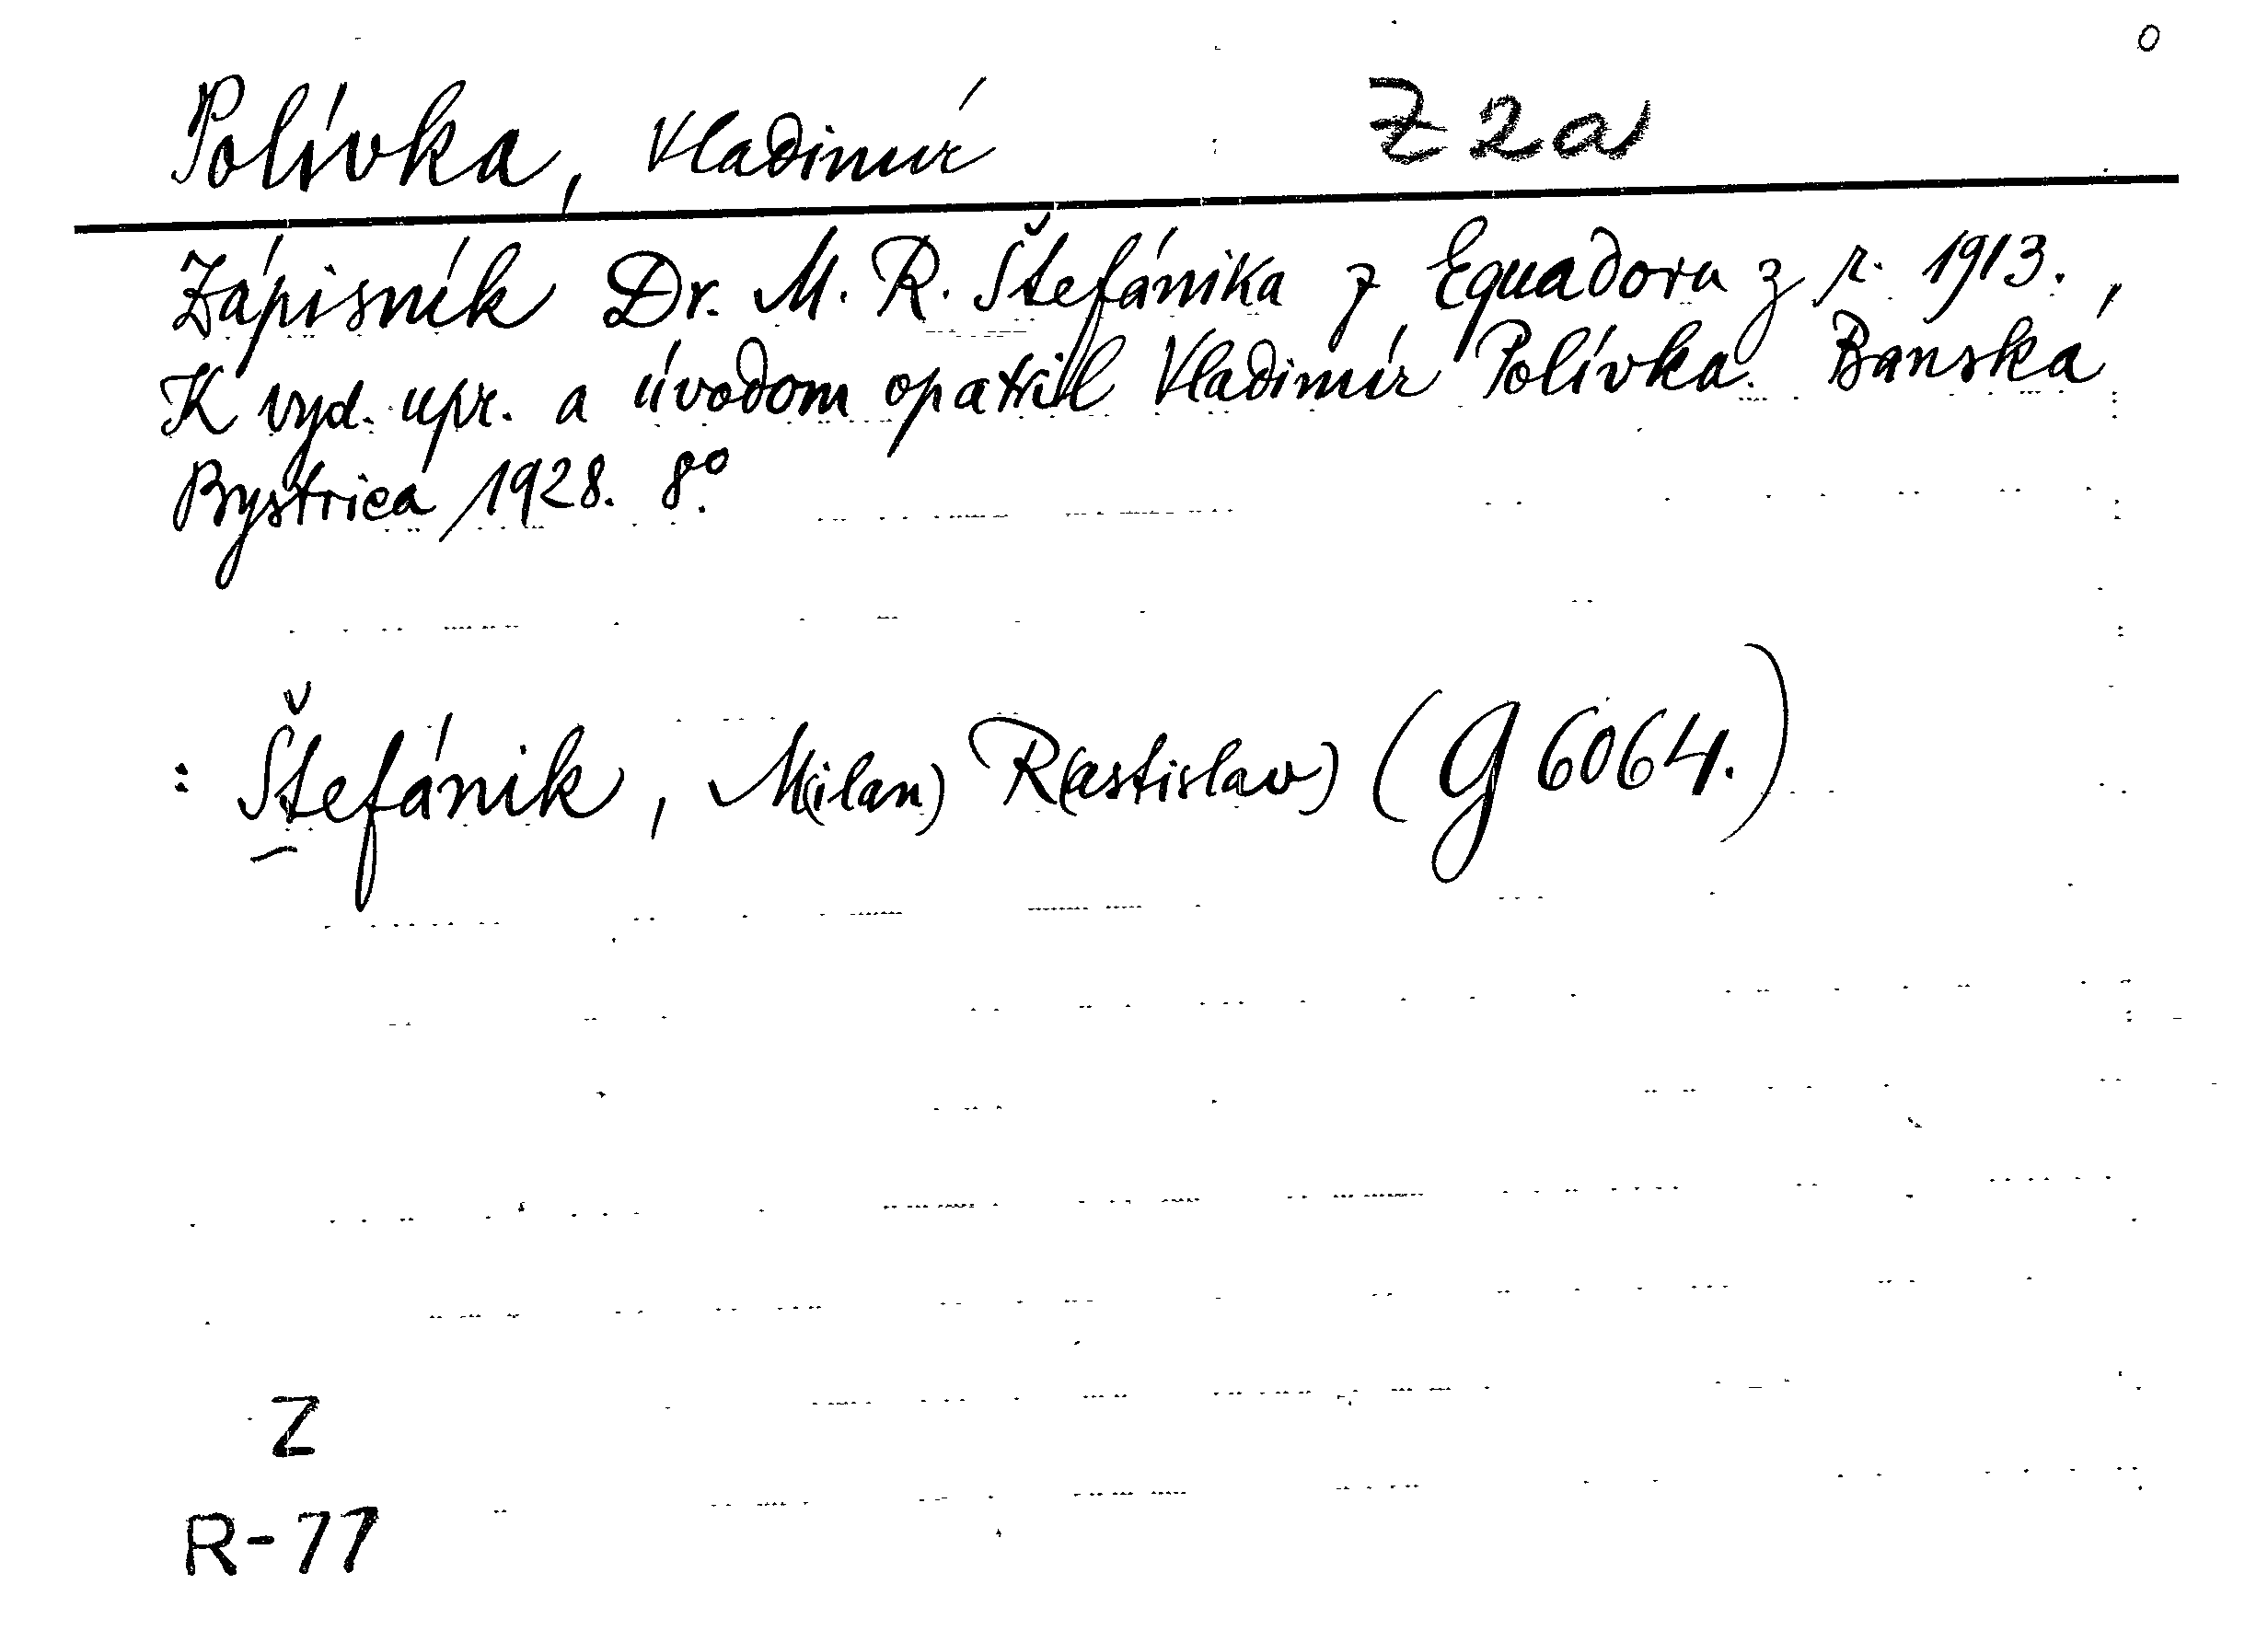 o
Polívka, Vladimír Z 2a
Zápisník Dr. M. R. Štefánika z Equadoru z r. 1913.
K vyd. upr. a úvodom opatril Vladimír Polívka. Banská
Bystrica 1928. 8°.
: Štefánik, M(ilan) R(astislav) (G 6064.)
Z
R-77